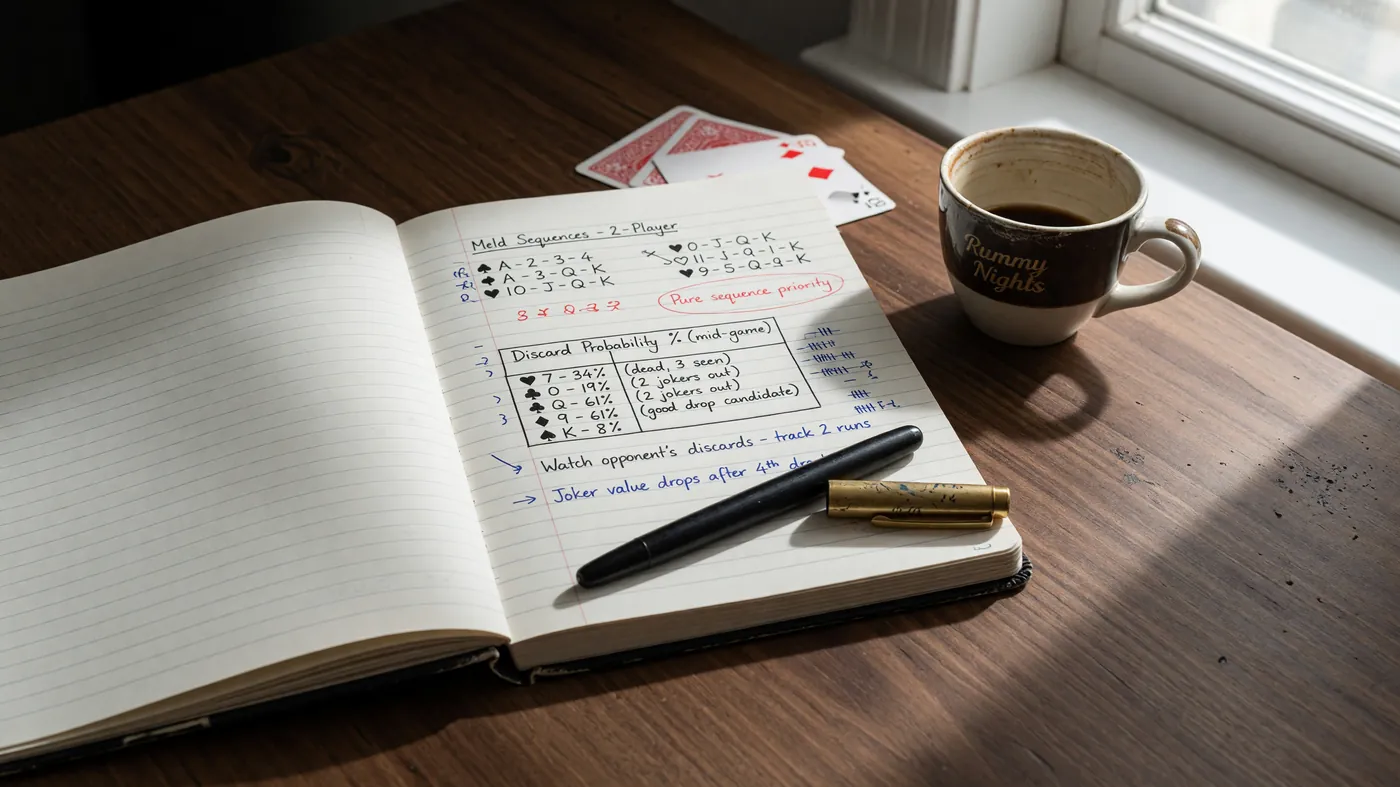 Meld Sequences - 2-Player
♠ A-2-3-4
♣ A-3-Q-K
♥ 10-J-Q-K
♥ 0-J-Q-K
♡ 11-J-9-1-K
♥ 9-5-Q-9-K
Pure sequence priority
Discard Probability % (mid-game)
♥ 7 - 34% (dead, 3 seen)
♣ 0 - 19% (2 jokers out)
♣ Q - 61% (2 jokers out)
♦ 9 - 61% (good drop candidate)
♠ K - 8%
Watch opponent's discards - track 2 runs
→ Joker value drops after 4th
Rummy
Nights